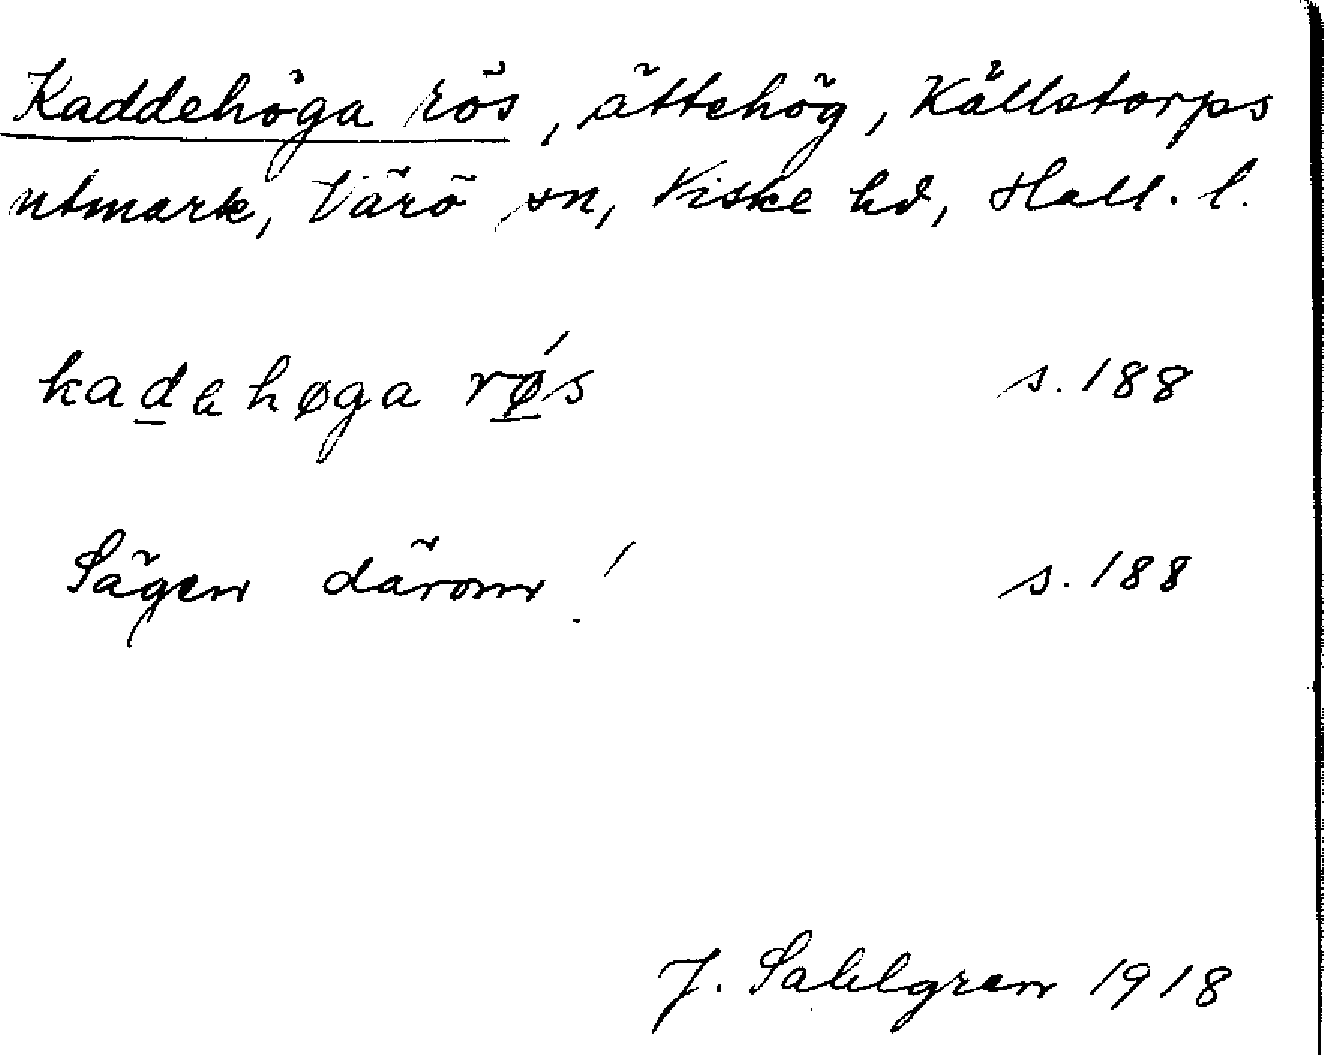 Kaddehöga rös, ättehög, Källstorps
utmark, Värö sn, Viske hd, Hall. l.
kadehøga røʹs s. 188
Sägen därom! s. 188
J. Sahlgren 1918